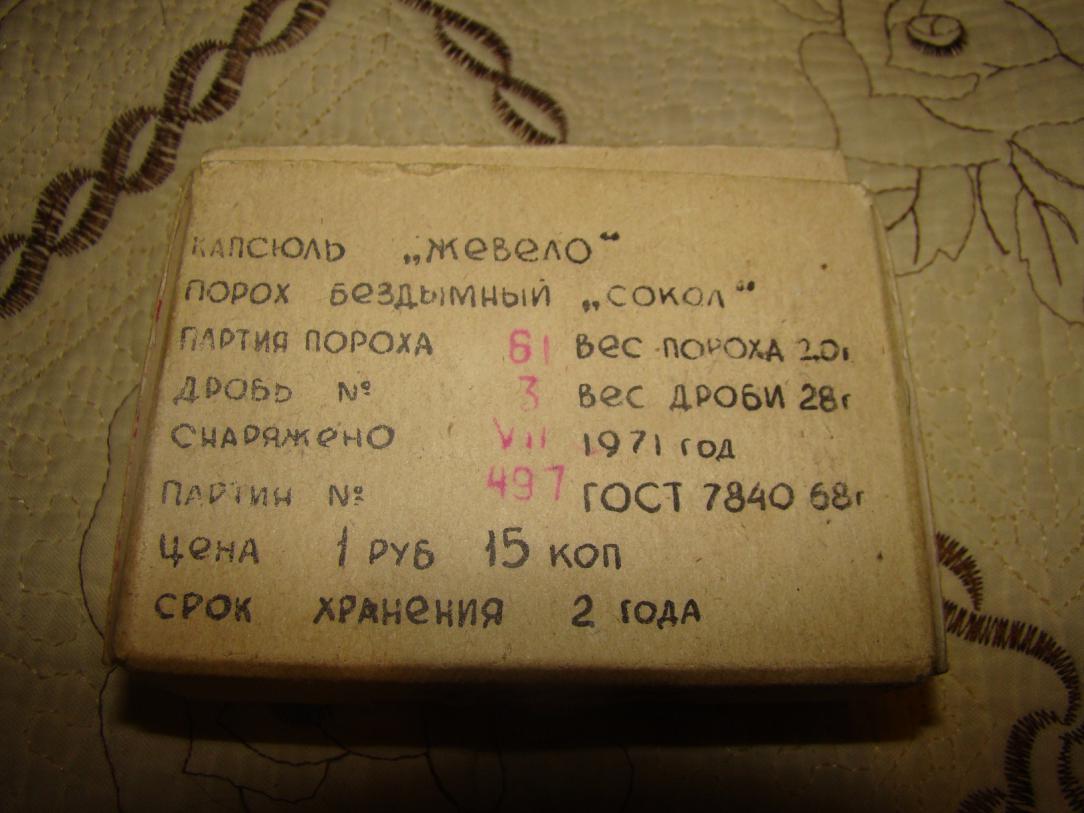 КАПСЮЛЬ „ЖЕВЕЛО“
ПОРОХ БЕЗДЫМНЫЙ „СОКОЛ“
ПАРТИЯ ПОРОХА 61 ВЕС ПОРОХА 2.0г
ДРОБЬ № 3 ВЕС ДРОБИ 28г
СНАРЯЖЕНО VII 1971 ГОД
ПАРТИЯ № 497 ГОСТ 7840 68г
ЦЕНА 1 РУБ 15 КОП
СРОК ХРАНЕНИЯ 2 ГОДА